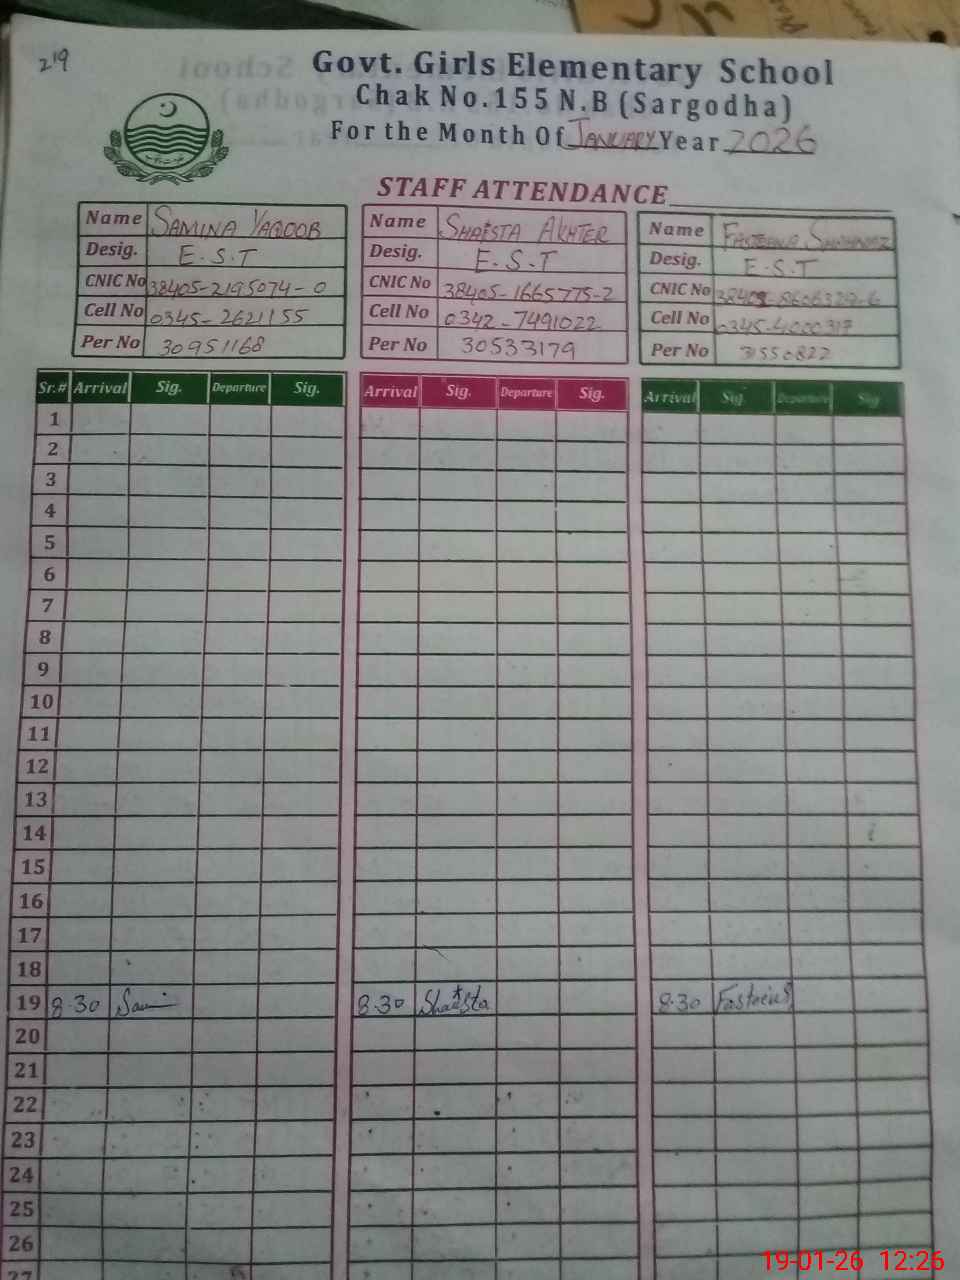 219
Govt. Girls Elementary School
Chak No.155 N.B (Sargodha)
For the Month Of JANUARY Year 2026
STAFF ATTENDANCE
Name SAMINA YAQOOB
Desig. E.S.T
CNIC No 38405-2195074-0
Cell No 0345-2621155
Per No 30951168
Name SHAISTA AKHTER
Desig. E.S.T
CNIC No 38405-1665775-2
Cell No 0342-7491022
Per No 30533179
Name
Desig. E.S.T
CNIC No
Cell No 0345-4000317
Per No 31550822
Sr.# Arrival Sig. Departure Sig. Arrival Sig. Departure Sig. Arrival Sig. Departure Sig
1
2
3
4
5
6
7
8
9
10
11
12
13
14
15
16
17
18
19 8.30 8.30 Shaista 8.30
20
21
22
23
24
25
26
27
19-01-26 12:26